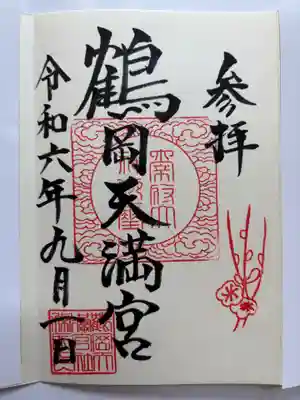 参拝
鶴岡天満宮
令和六年九月一日